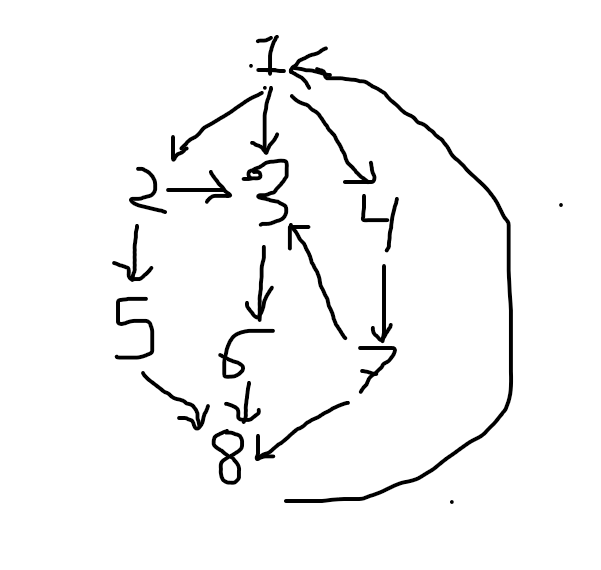 1
2 3 4
5 6 7
8